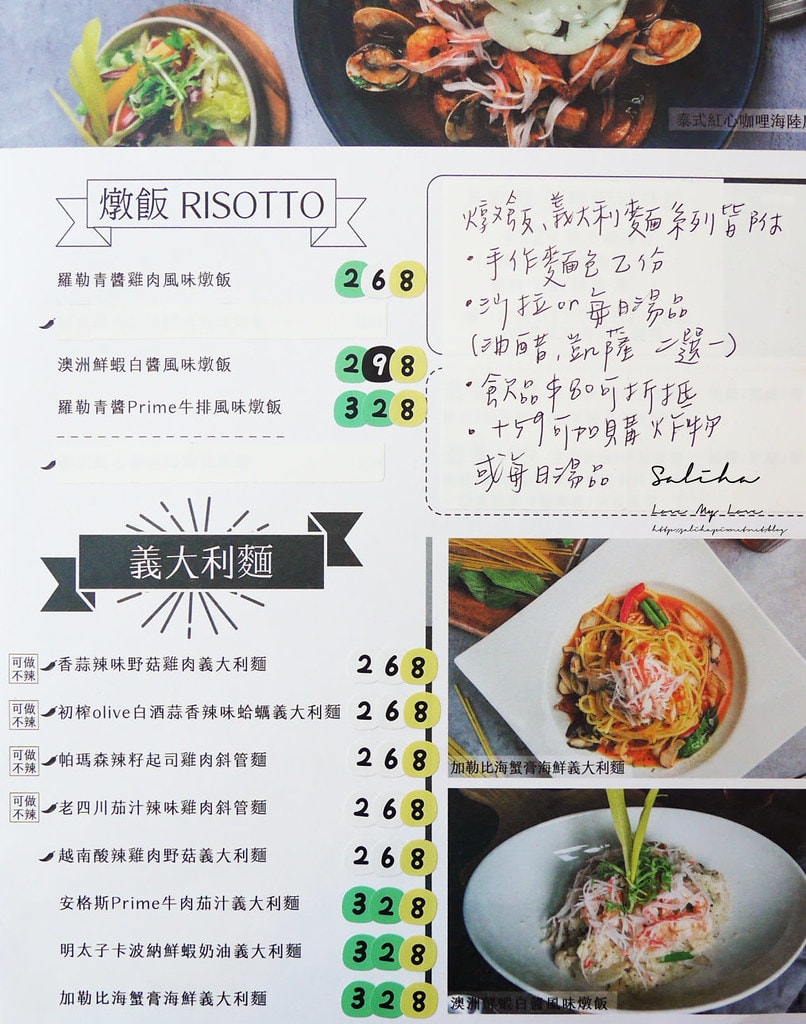 泰式紅心咖哩海陸
燉飯 RISOTTO
羅勒青醬雞肉風味燉飯 268
澳洲鮮蝦白醬風味燉飯 298
羅勒青醬Prime牛排風味燉飯 328
燉飯、義大利麵系列皆附
・手作麵包乙份
・沙拉or每日湯品
(油醋,凱薩 二選一)
・飲品$80可折抵
・+59可加購炸物
或每日湯品
Saliha
Love My Love
義大利麵
可做不辣 香蒜辣味野菇雞肉義大利麵 268
可做不辣 初榨olive白酒蒜香辣味蛤蠣義大利麵 268
可做不辣 帕瑪森辣籽起司雞肉斜管麵 268
可做不辣 老四川茄汁辣味雞肉斜管麵 268
越南酸辣雞肉野菇義大利麵 268
安格斯Prime牛肉茄汁義大利麵 328
明太子卡波納鮮蝦奶油義大利麵 328
加勒比海蟹膏海鮮義大利麵 328
加勒比海蟹膏海鮮義大利麵
澳洲鮮蝦白醬風味燉飯